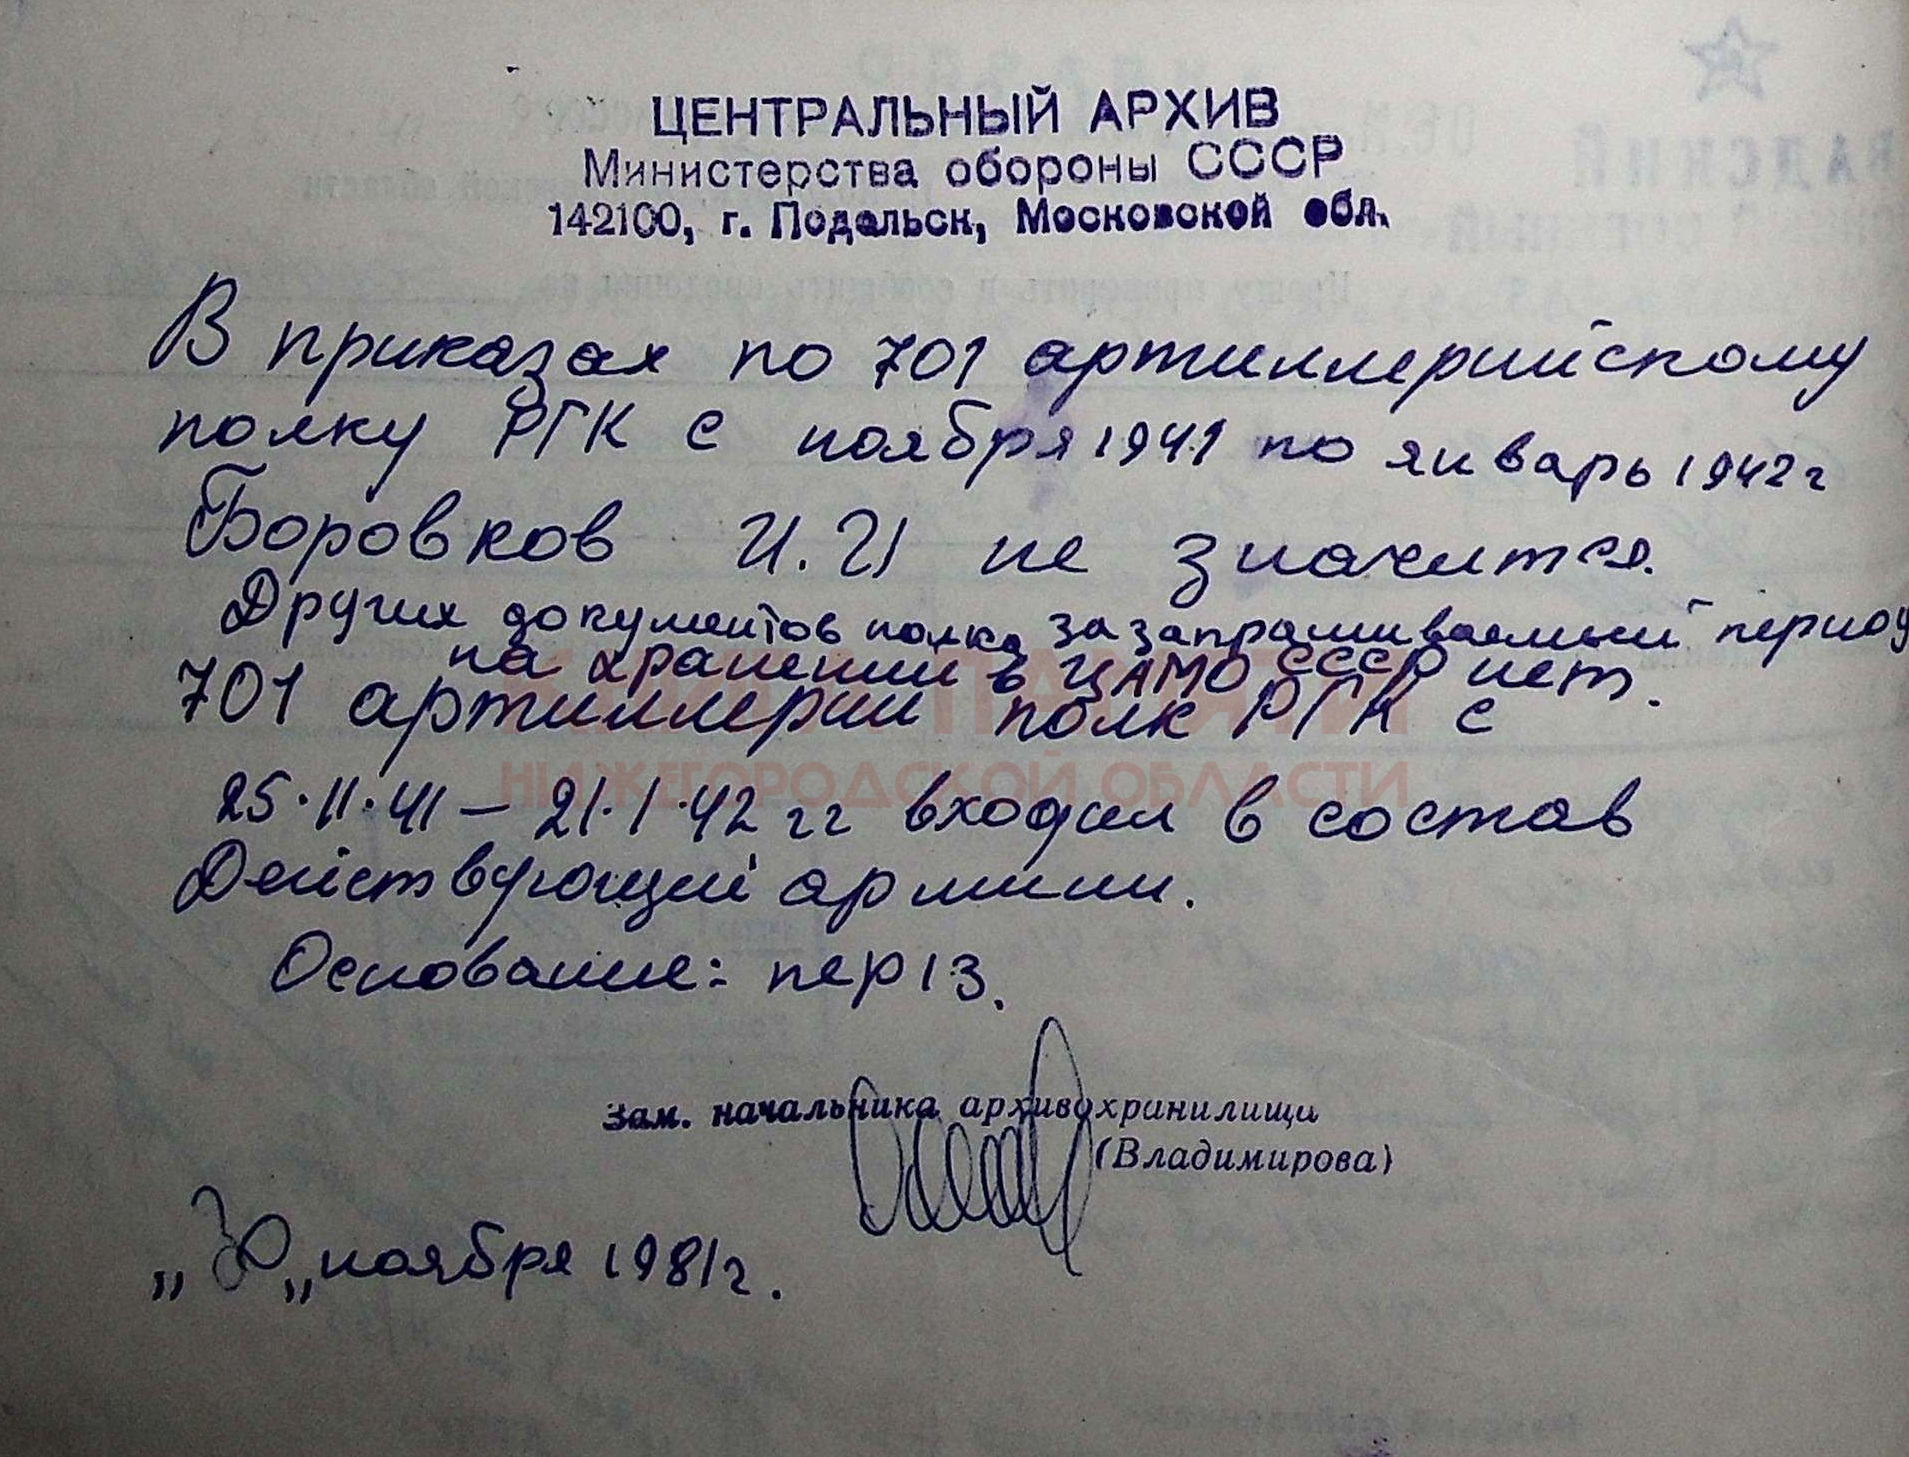 ЦЕНТРАЛЬНЫЙ АРХИВ
Министерства обороны СССР
142100, г. Подольск, Московской обл.
В приказах по 701 артиллерийскому
полку РГК с ноября 1941 по январь 1942 г
Боровков И. И не значится.
Других документов полка за запрашиваемый период
на хранении в ЦАМО СССР нет.
701 артиллерии полк РГК с
НИЖЕГОРОДСКОЙ ОБЛАСТИ
25.11.41 – 21.1.42 гг входил в состав
Действующей армии.
Основание: пер 13.
зам. начальника архивохранилища
(Владимирова)
„30„ ноября 1981г.